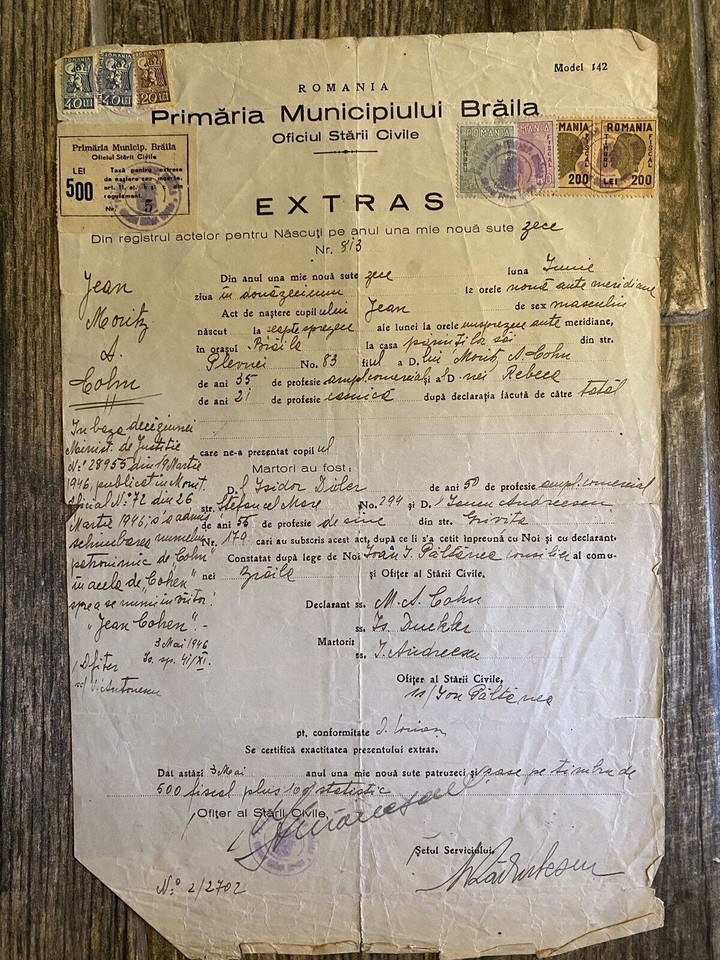 Model 142
ROMANIA
Primăria Municipiului Brăila
Oficiul Stării Civile
ROMANIA
ROMANIA
40 LEI
40 LEI
20 LEI
Primăria Municip. Brăila
Oficiul Stării Civile
LEI
500
Taxă pentru extrase
de naștere sau moarte,
art. II, al. din
regulament.
Nr. 5
ROMANIA
TIMBRU
ROMANIA
FISCAL
ROMANIA
FISCAL
200
ROMANIA
TIMBRU
FISCAL
LEI 200
EXTRAS
Din registrul actelor pentru Născuți pe anul una mie nouă sute zece
Nr. 813
Jean
Moritz
A.
Cohn
Din anul una mie nouă sute zece luna Iunie
ziua în douăzecișiunu la orele nouă ante meridiane
Act de naștere copilului Jean de sex masculin
născut la șaptesprezece ale lunei la orele unsprezece ante meridiane,
în orașul Brăila la casa părinților săi din str.
Plevnei No. 83 fiul a D. lui Moritz A. Cohn
de ani 35 de profesie ampl. comercial și a D. nei Rebeca
de ani 21 de profesie casnică după declarația făcută de către tatăl
care ne-a prezentat copilul
Martori au fost:
D. Isidor de ani 50 de profesie ampl. comercial
str. Ștefan cel Mare No. 294 și D. Andreescu
de ani 56 de profesie din str. Grivița
Nr. 179 cari au subscris acest act, după ce li s'a cetit inpreună cu Noi și cu declarant.
Constatat după lege de Noi Ioan I. Păltânea consilier al comu-
nei Brăila și Ofițer al Stării Civile.
În baza deciziunei
Minist. de Justiție
No. 28955 din 19 Martie
1946, publicat în Monit.
Oficial No. 72 din 26
Martie 1946, s'a admis
schimbarea numelui
patronimic de "Cohn"
în acela de "Cohen"
spre a se numi în viitor:
"Jean Cohen". -
3 Mai 1946
Ofițer
ss/ V. Antonescu
Declarant ss. M. A. Cohn
ss. Is.
Martori:
ss. I. Andreescu
Ofițer al Stării Civile,
ss/ Ion Păltânea
pt. conformitate
Se certifică exactitatea prezentului extras.
Dat astăzi 3 Mai anul una mie nouă sute patruzeci și șase pe timbru de
500 fiscal plus 10 statistic
Ofițer al Stării Civile,
Șeful Serviciului,
No. 2/2702